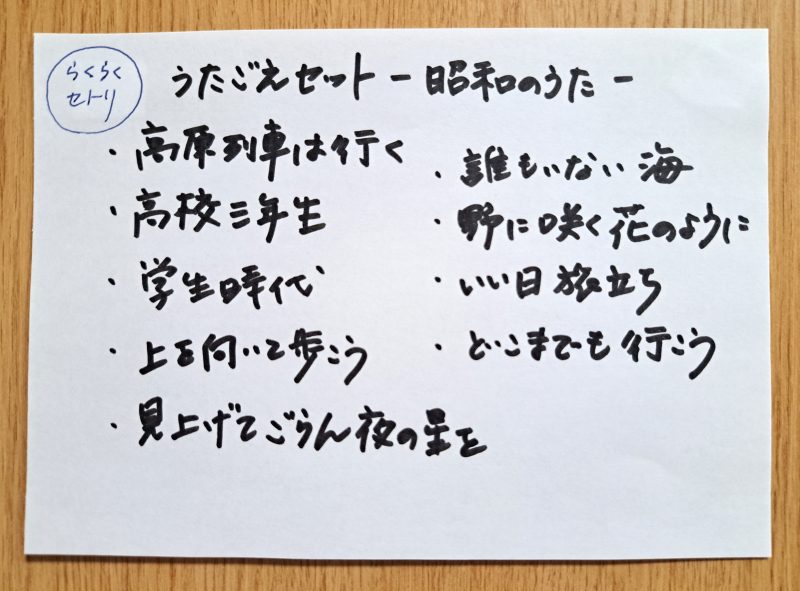 らくらく
セトリ
うたごえセット － 昭和のうた －
・高原列車は行く
・高校三年生
・学生時代
・上を向いて歩こう
・見上げてごらん夜の星を
・誰もいない海
・野に咲く花のように
・いい日旅立ち
・どこまでも行こう